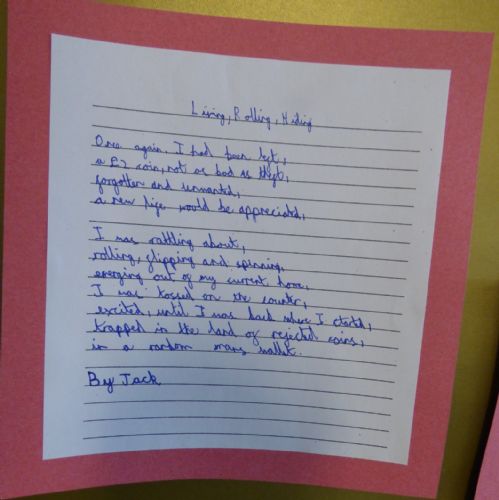 Living, Rolling, Hiding
Once again, I had been left,
a £2 coin, not as bad as theft,
forgotten and unwanted,
a new life would be appreciated,
I was rattling about,
rolling, flipping and spinning,
emerging out of my current home,
I was tossed on the counter,
excited, until I was back where I started,
trapped in the land of rejected coins,
in a random mans wallet.
By Jack